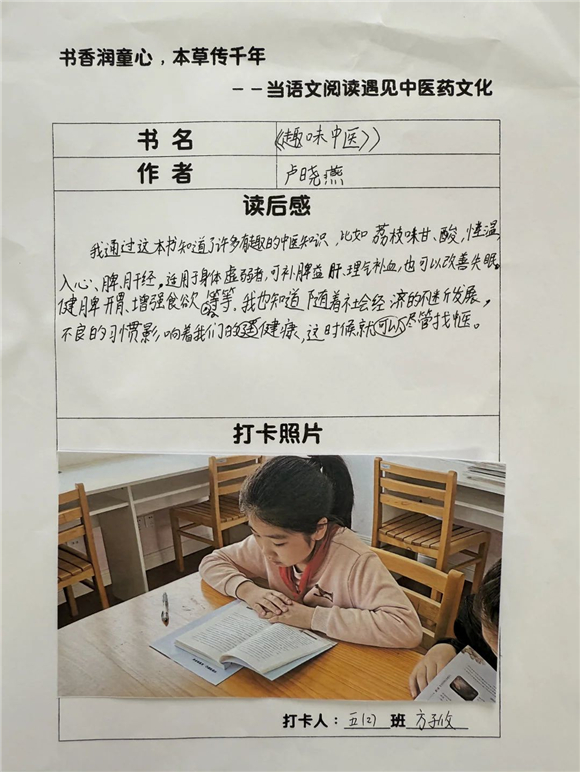 书香润童心，本草传千年
——当语文阅读遇见中医药文化
书名 《趣味中医》
作者 卢晓燕
读后感
我通过这本书知道了许多有趣的中医知识，比如荔枝味甘、酸，性温，
入心、脾、肝经。适用于身体虚弱者，可补脾益肝、理气补血，也可以改善失眠。
健脾开胃、增强食欲等等。我也知道了随着社会经济的不断发展，
不良的习惯影响着我们的健康，这时候就可以尽管找中医。
打卡照片
打卡人：五（2）班 方子